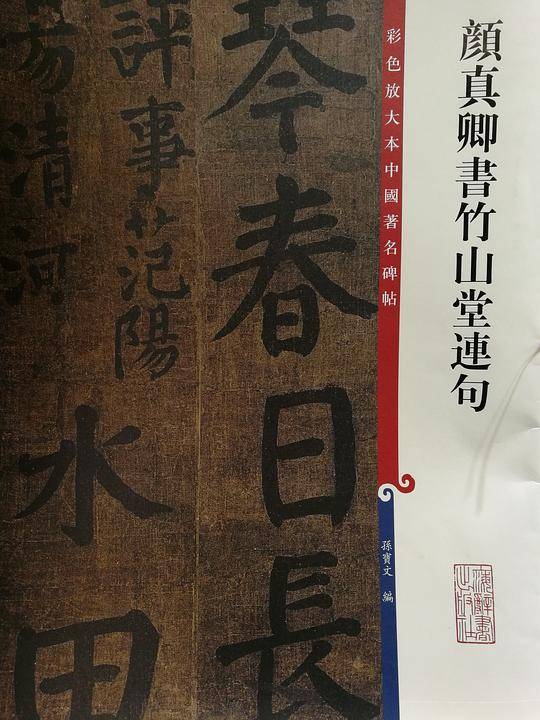 顔真卿書竹山堂連句
彩色放大本中國著名碑帖
孫寶文 編
上海辭書出版社
今春日長
評事范陽
水田
清河